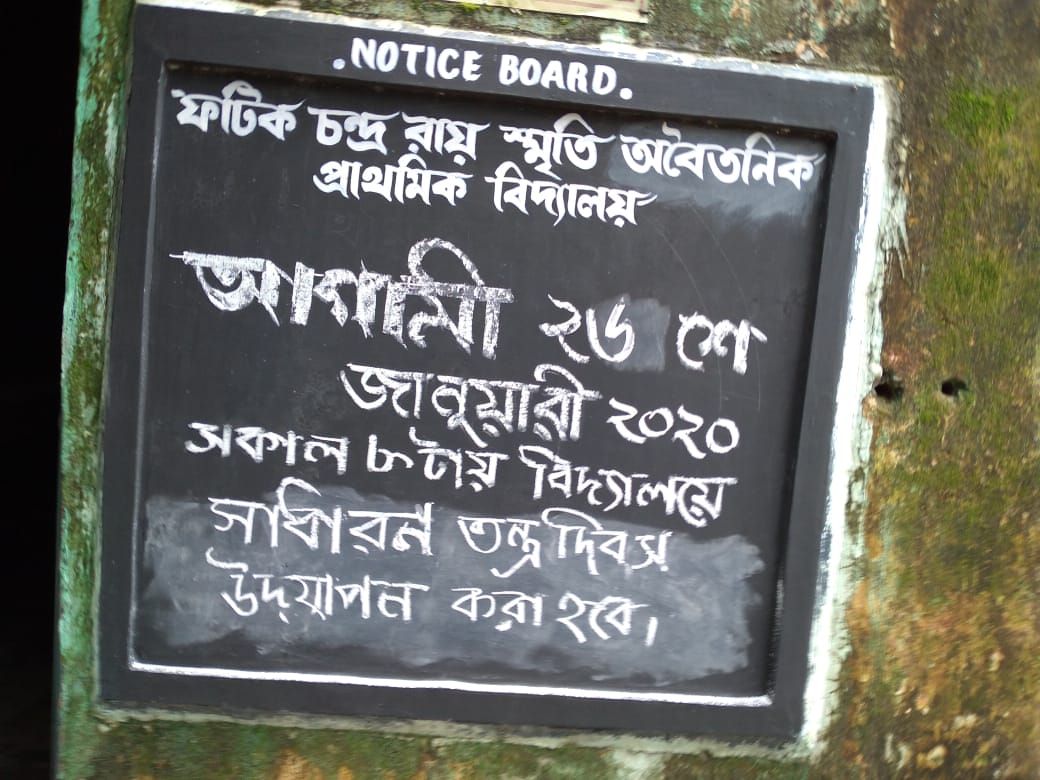 .NOTICE BOARD.
ফটিক চন্দ্র রায় স্মৃতি অবৈতনিক
প্রাথমিক বিদ্যালয়
আগামী ২৬ শে
জানুয়ারী ২০২০
সকাল ৮ টায় বিদ্যালয়ে
সাধারন তন্ত্র দিবস
উদ্‌যাপন করা হবে।